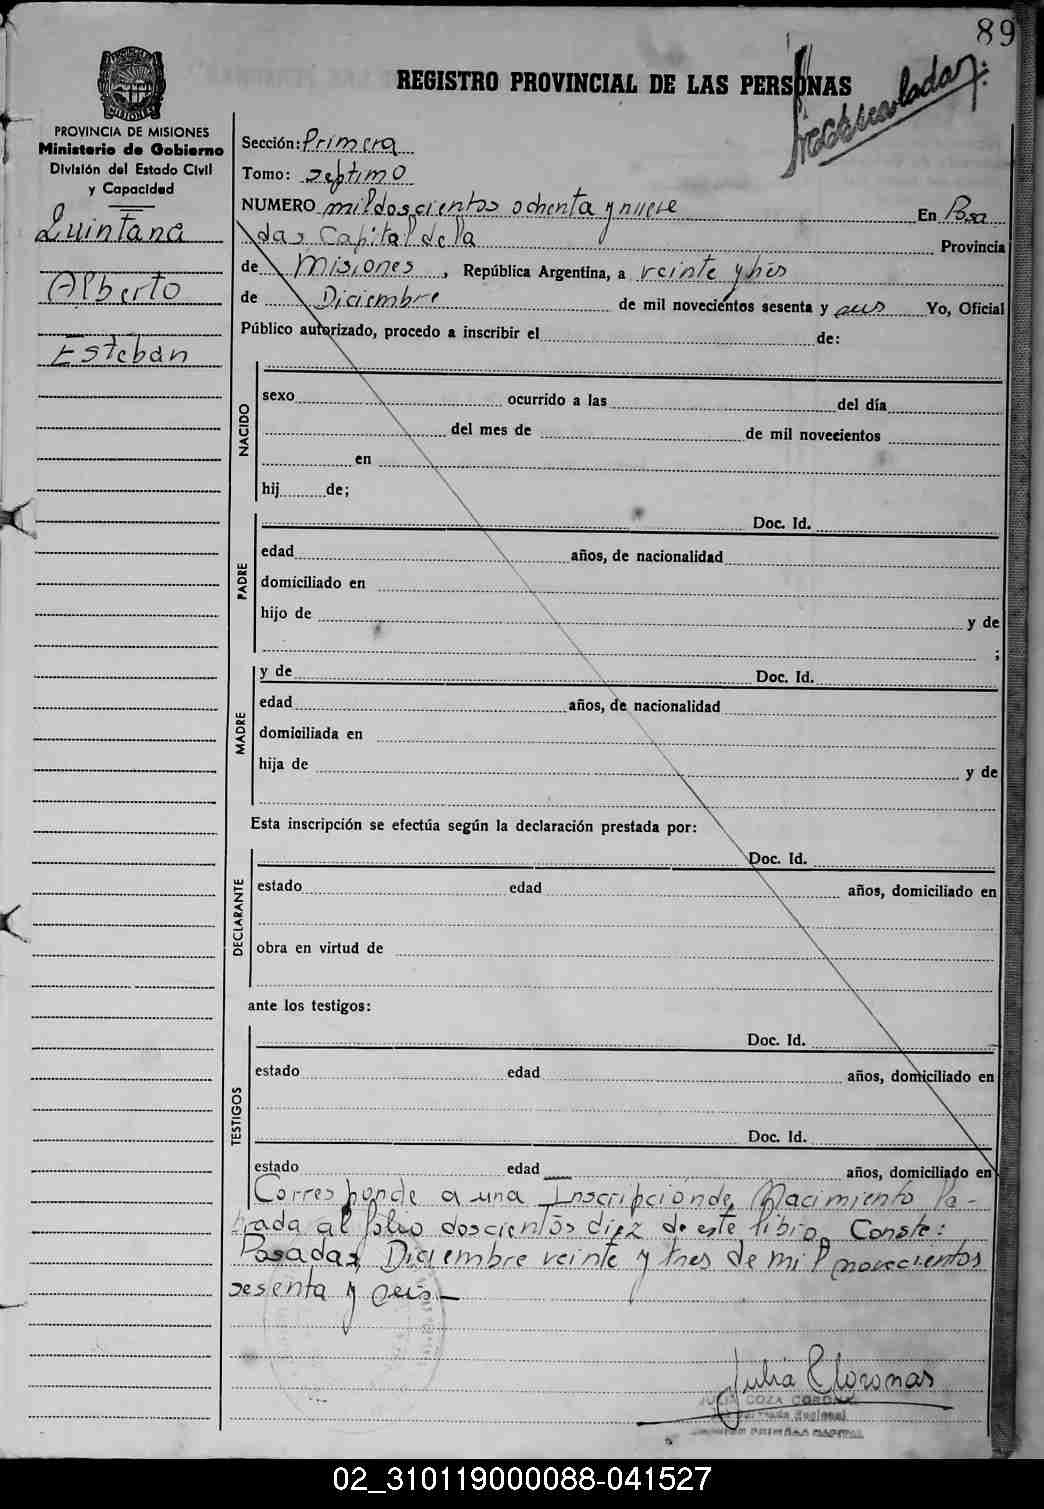 89
REGISTRO PROVINCIAL DE LAS PERSONAS
PROVINCIA DE MISIONES
Ministerio de Gobierno
División del Estado Civil
y Capacidad
Quintana
Alberto
Esteban
Sección: Primera
Tomo: septimo
NUMERO mil doscientos ochenta y nueve En Posa
das Capital de la Provincia
de Misiones, República Argentina, a veinte y tres
de Diciembre de mil novecientos sesenta y seis Yo, Oficial
Público autorizado, procedo a inscribir el de:
NACIDO
sexo ocurrido a las del día
del mes de de mil novecientos
en
hij de;
PADRE
Doc. Id.
edad años, de nacionalidad
domiciliado en
hijo de y de
;
MADRE
y de Doc. Id.
edad años, de nacionalidad
domiciliada en
hija de y de
Esta inscripción se efectúa según la declaración prestada por:
DECLARANTE
Doc. Id.
estado edad años, domiciliado en
obra en virtud de
ante los testigos:
TESTIGOS
Doc. Id.
estado edad años, domiciliado en
Doc. Id.
estado edad años, domiciliado en
Corresponde a una Inscripcion de Nacimiento la-
brada al folio doscientos diez de este libro. Conste:
Posadas, Diciembre veinte y tres de mil novecientos
sesenta y seis—
Julia C Coronas
JULIA COZA CORONAS
02_310119000088-041527